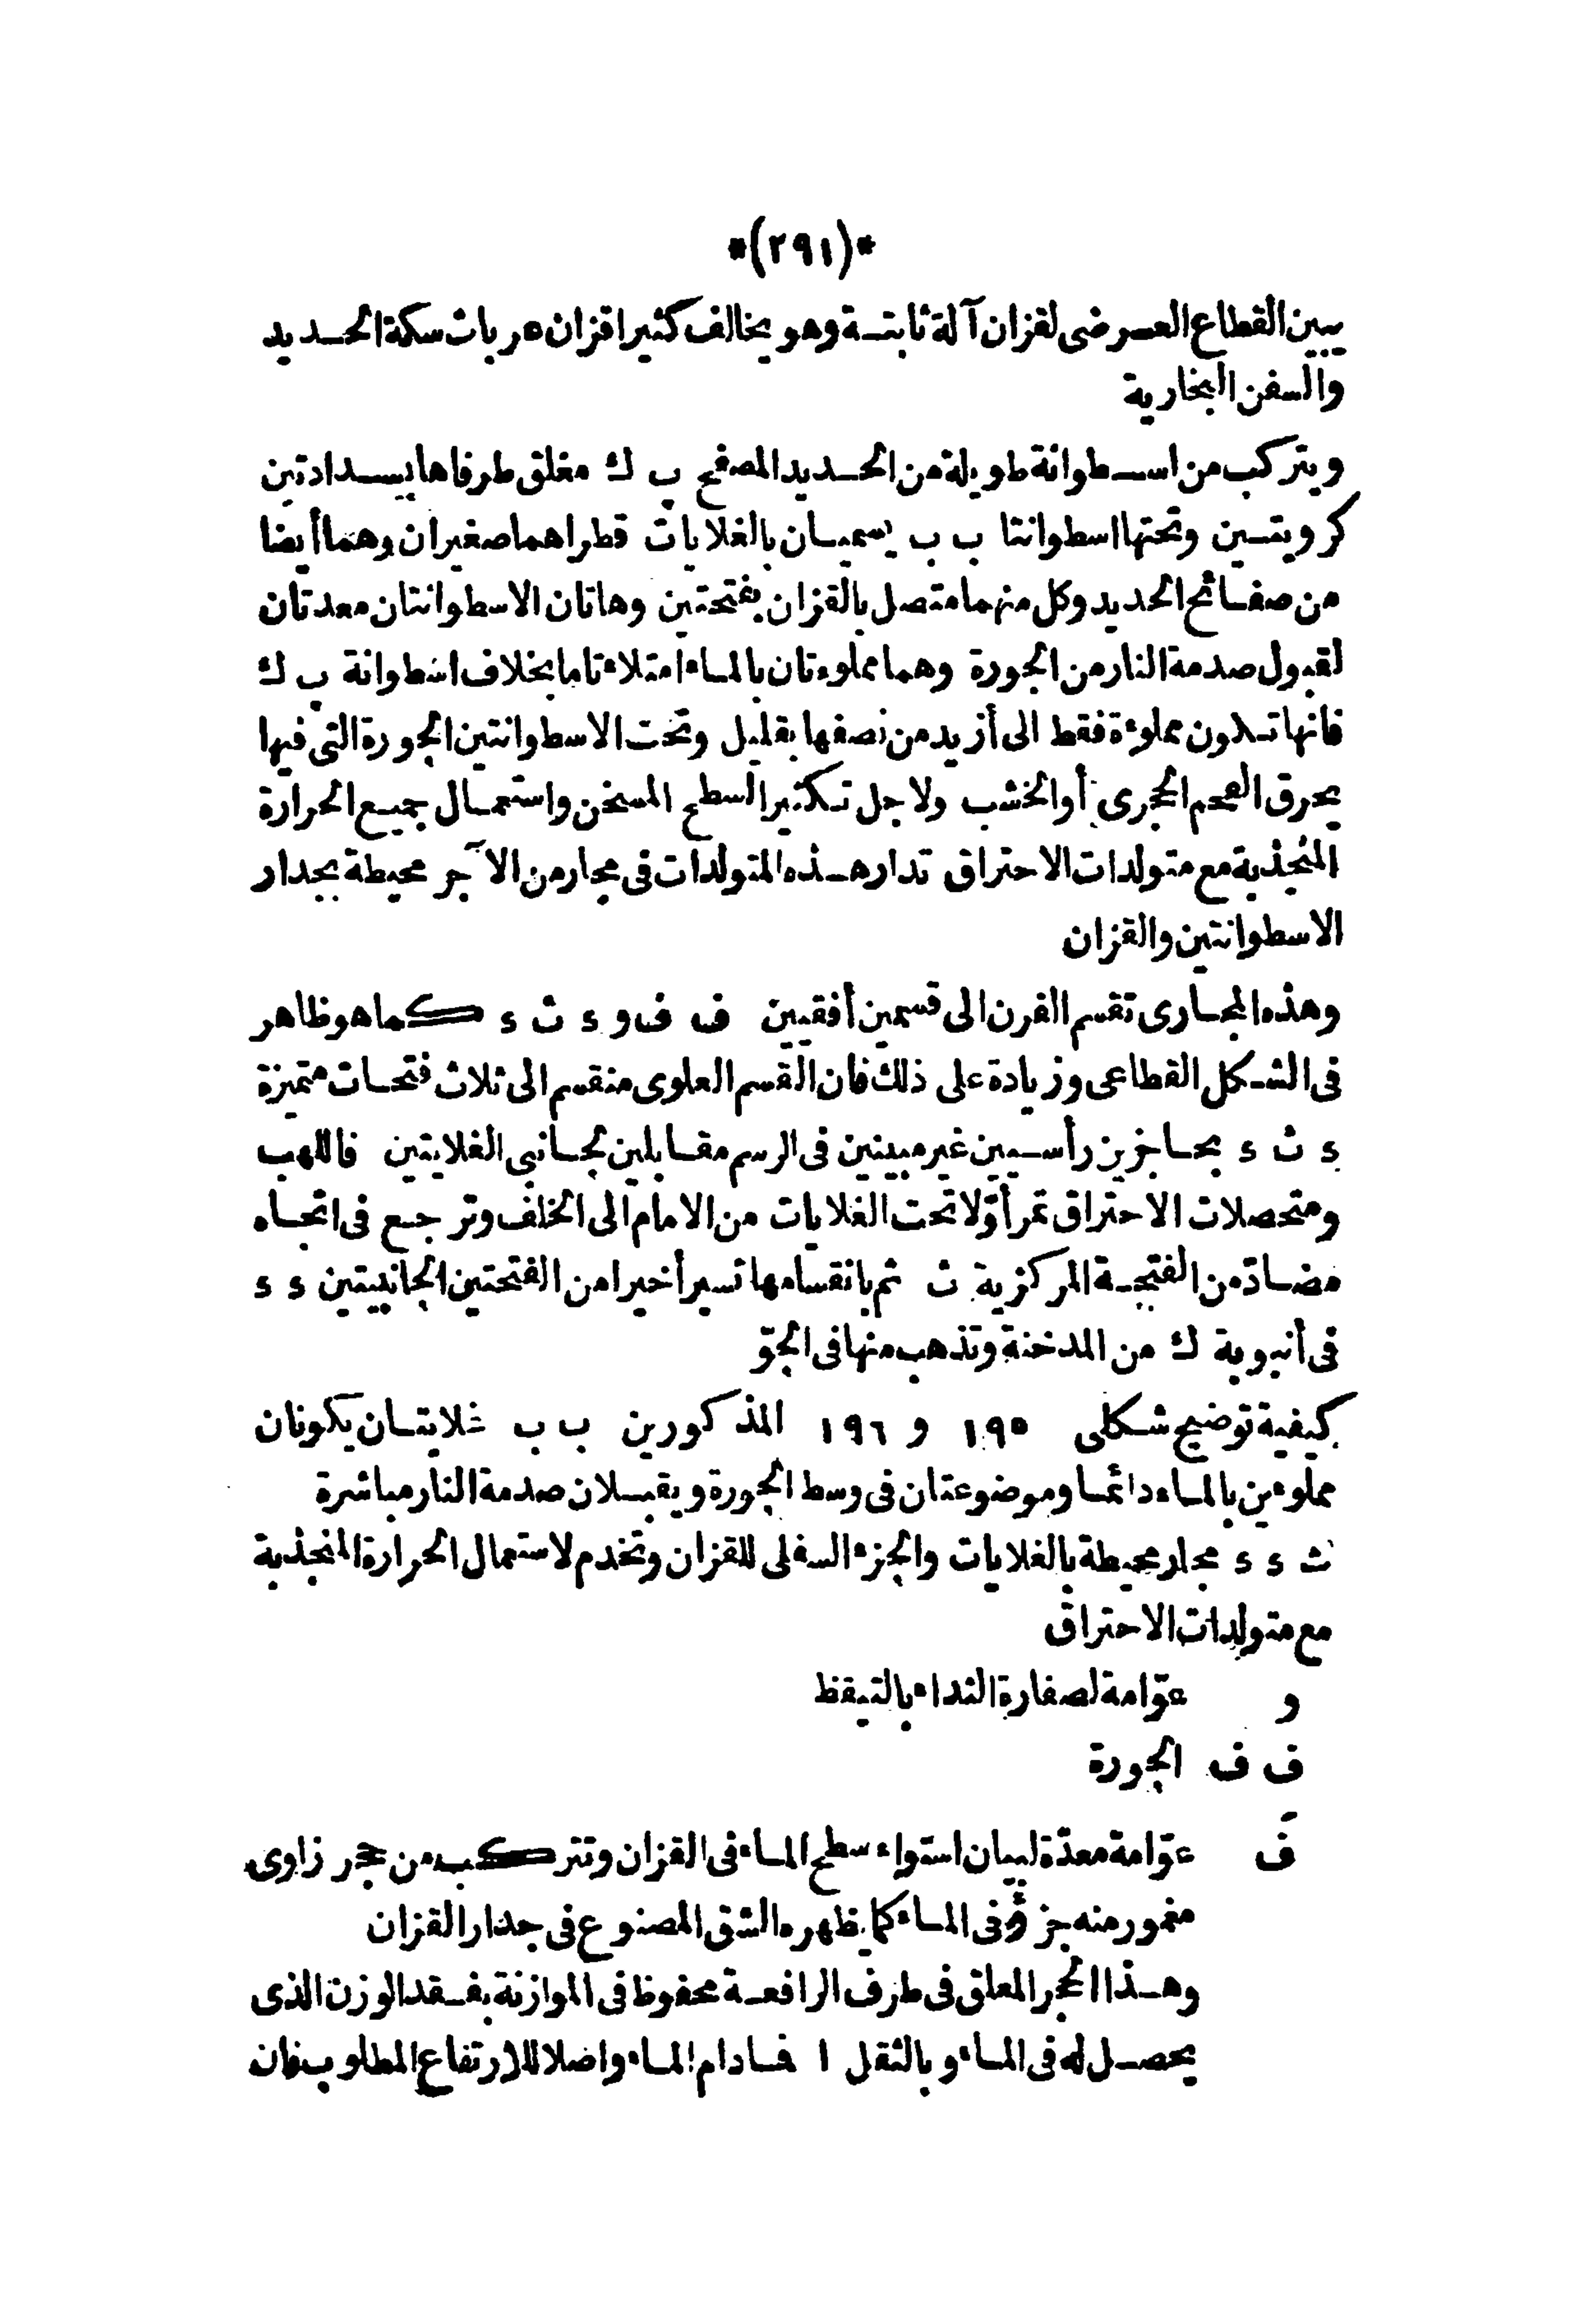 *(٢٩١)*
يبين القطاع العرضى لقزان آلة ثابتة وهو يخالف كثيرا قزان عربات سكة الحديد
والسفن البخارية
ويتركب من اسطوانة طويلة من الحديد المصفح پ ك مغلق طرفاها بسدادتين
كرويتين وتحتها اسطوانتا ب ب يسميان بالغلايات قطراهما صغيران وهما أيضا
من صفائح الحديد وكل منهما متصل بالقزان بفتحتين وهاتان الاسطوانتان معدتان
لقبول صدمة النار من الجورة وهما مملوءتان بالماء امتلاء تاما بخلاف اسطوانة پ ك
فانها تكون مملوءة فقط الى أزيد من نصفها بقليل وتحت الاسطوانتين الجورة التى فيها
يحرق الفحم الحجرى أو الخشب ولاجل تكثير السطح المسخن واستعمال جميع الحرارة
المنجذبة مع متولدات الاحتراق تدار هذه المتولدات فى مجار من الآجر محيطة بجدار
الاسطوانتين والقزان
وهذه المجارى تقسم الفرن الى قسمين أفقيين ف ف و ء ث ء كما هو ظاهر
فى الشكل القطاعى وزيادة على ذلك فان القسم العلوى منقسم الى ثلاث فتحات متميزة
ء ث ء بحاجزين رأسيين غير مبينين فى الرسم مقابلين لجانبى الغلايتين فاللهب
ومتحصلات الاحتراق تمر أوّلا تحت الغلايات من الامام الى الخلف وترجع فى اتجاه
مضادّ من الفتحة المركزية ث ثم بانقسامها تسير أخيرا من الفتحتين الجانبيتين ء ء
فى أنبوبة ك من المدخنة وتذهب منها فى الجوّ
كيفية توضيح شكلى ١٩٥ و ١٩٦ المذكورين ب ب غلايتان يكونان
مملوءين بالماء دائما وموضوعتان فى وسط الجورة ويقبلان صدمة النار مباشرة
ث ء ء مجار محيطة بالغلايات والجزء السفلى للقزان وتخدم لاستعمال الحرارة المنجذبة
مع متولدات الاحتراق
و عوّامة لصفارة النداء بالتيقظ
ف ف الجورة
فَ عوّامة معدّة لبيان استواء سطح الماء فى القزان وتتركب من حجر زاوى
مغمور منه جزؤ فى الماء كما يظهره الشق المصنوع فى جدار القزان
وهذا الحجر المعلق فى طرف الرافعة محفوظ فى الموازنة بفقد الوزن الذى
يحصل له فى الماء وبالثقل ا فما دام الماء واصلا للارتفاع المطلوب فان